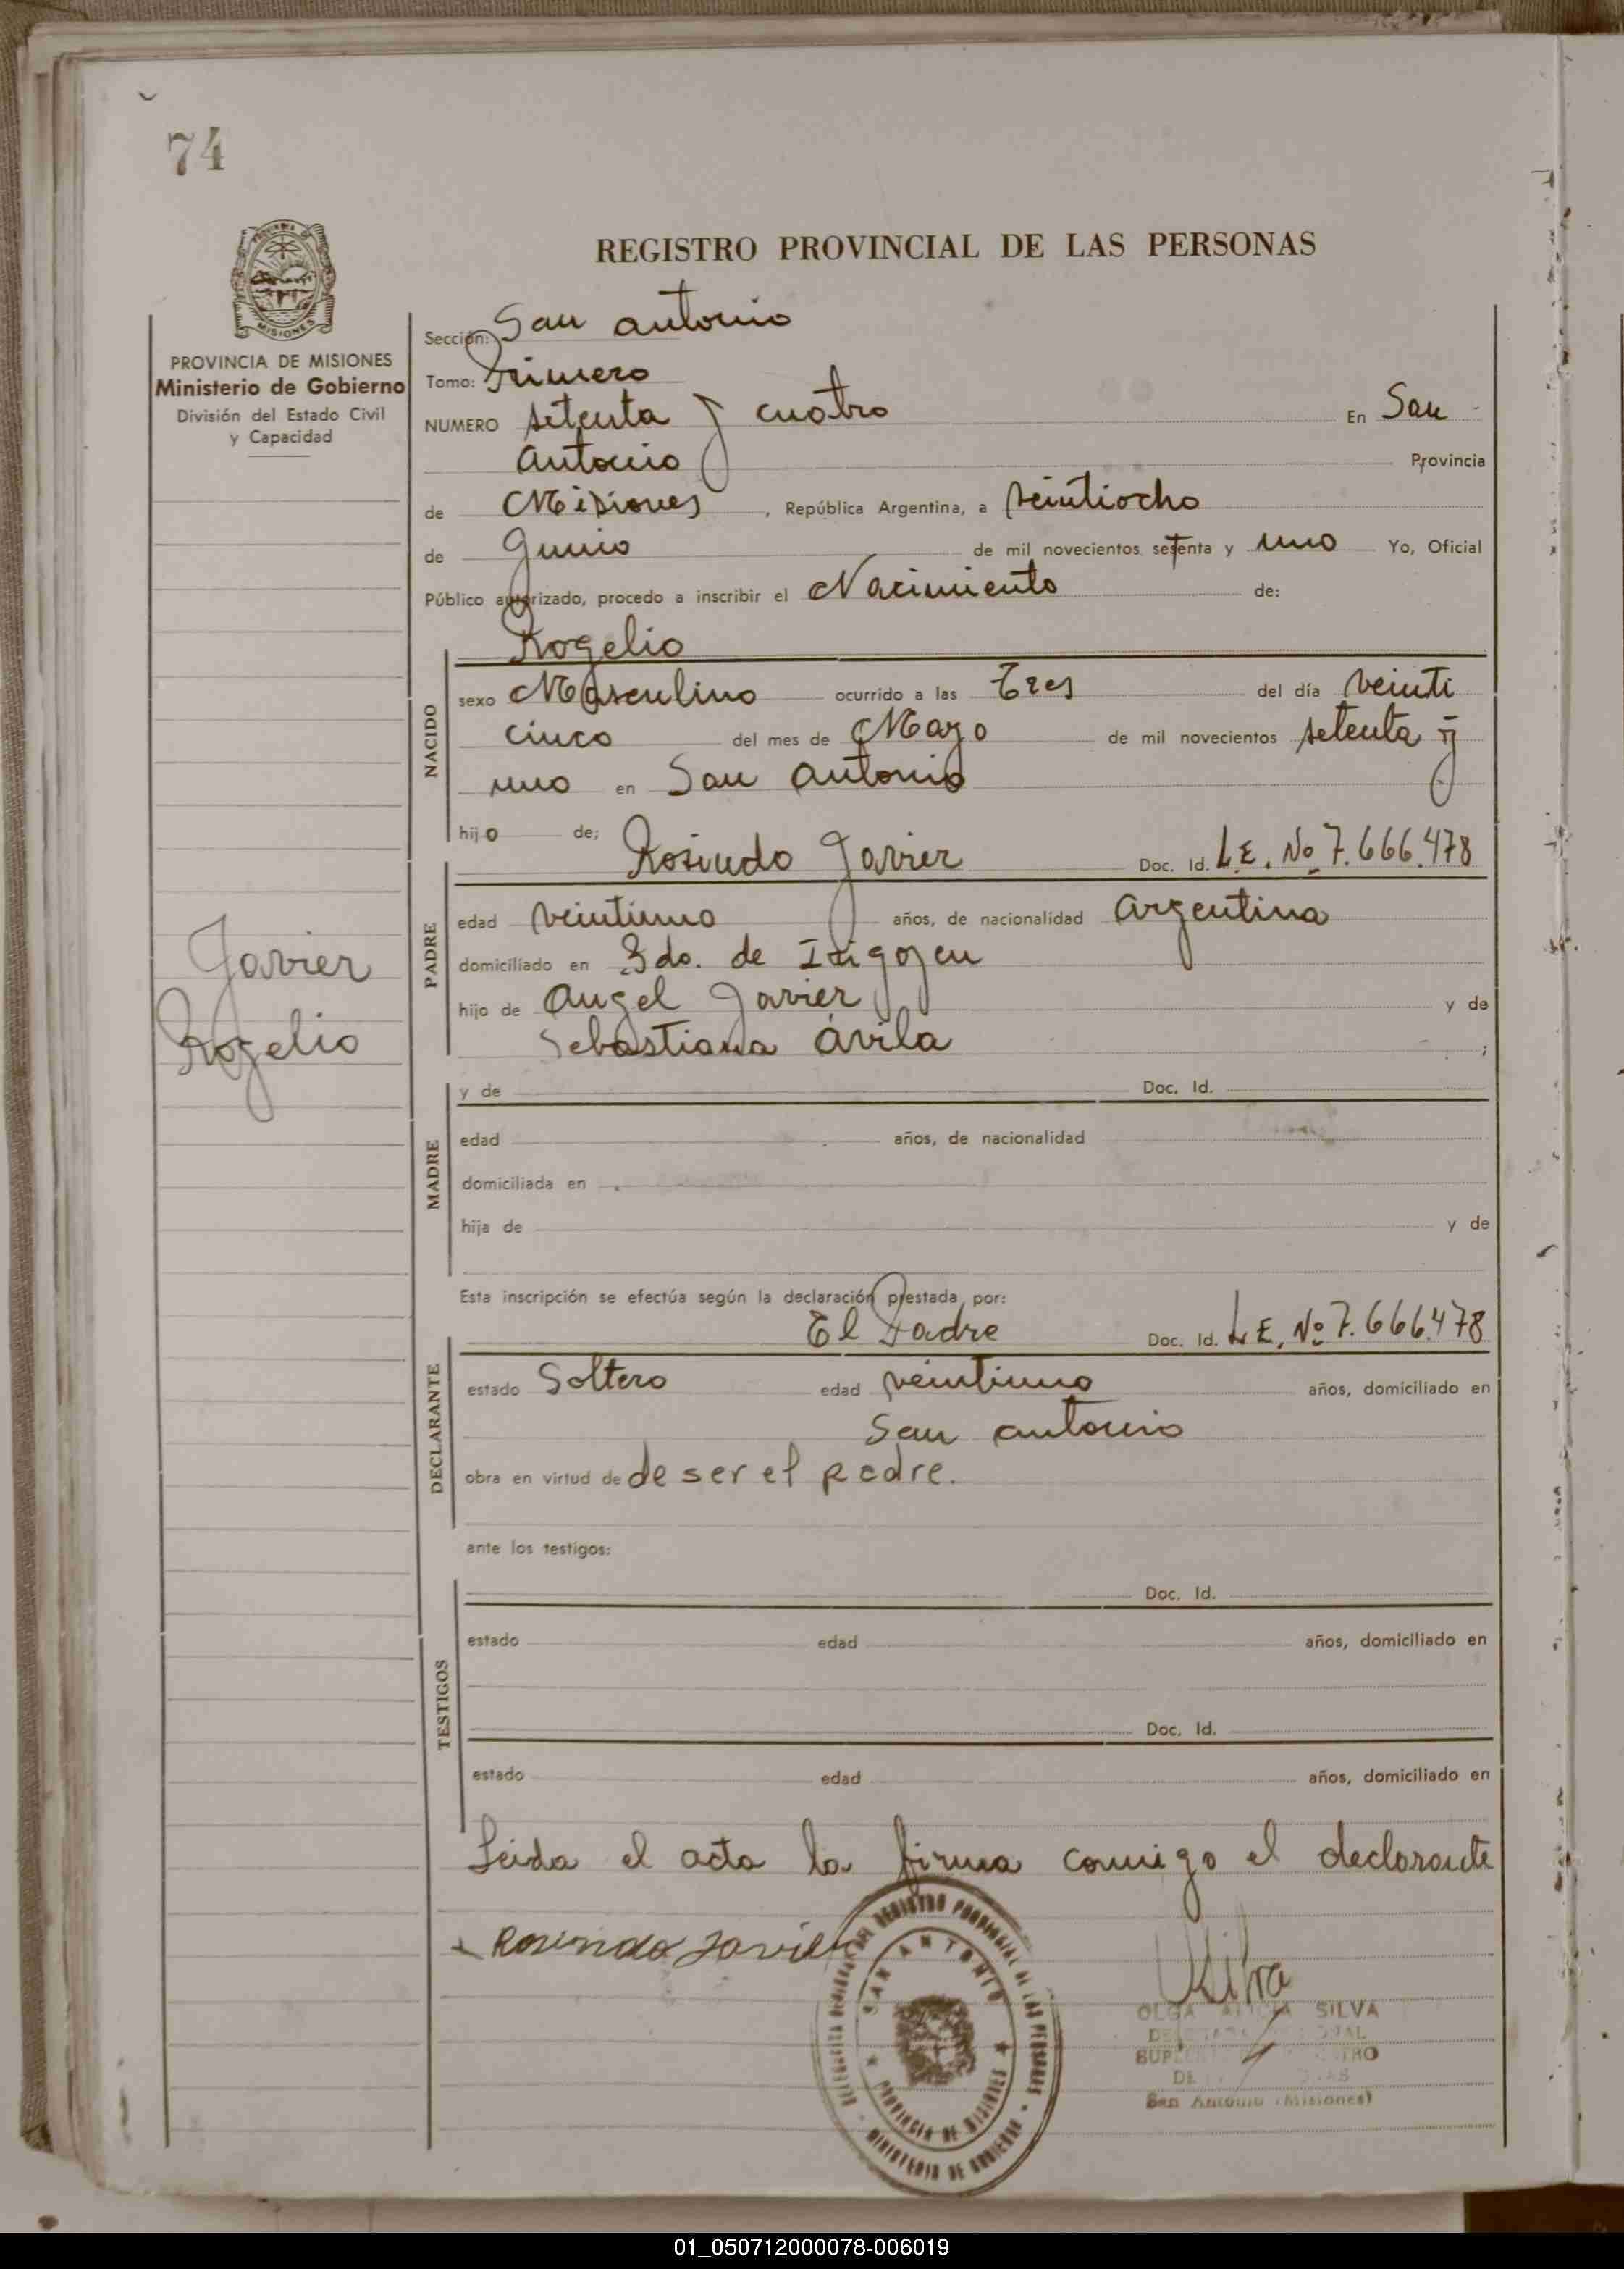 74
REGISTRO PROVINCIAL DE LAS PERSONAS
MISIONES
PROVINCIA DE MISIONES
Ministerio de Gobierno
División del Estado Civil
y Capacidad
Sección: San Antonio
Tomo: Primero
NUMERO setenta y cuatro En San
Antonio Provincia
de Misiones, República Argentina, a veintiocho
de Junio de mil novecientos setenta y uno Yo, Oficial
Público autorizado, procedo a inscribir el Nacimiento de:
Rogelio
NACIDO
sexo Masculino ocurrido a las Tres del día veinti
cinco del mes de Mayo de mil novecientos setenta y
uno en San Antonio
hijo de; Rosindo Javier Doc. Id. L.E. No 7.666.478
PADRE
edad veintiuno años, de nacionalidad Argentina
domiciliado en Bdo. de Irigoyen
hijo de Angel Javier y de
Sebastiana Ávila ;
Javier
Rogelio
y de Doc. Id.
MADRE
edad años, de nacionalidad
domiciliada en
hija de y de
Esta inscripción se efectúa según la declaración prestada por:
El Padre Doc. Id. L.E. No 7.666.478
DECLARANTE
estado Soltero edad veintiuno años, domiciliado en
San Antonio
obra en virtud de de ser el padre.
ante los testigos:
Doc. Id.
TESTIGOS
estado edad años, domiciliado en
Doc. Id.
estado edad años, domiciliado en
Leida el acta la firma conmigo el declarante
Rosindo Javier
SAN ANTONIO
PROVINCIA DE MISIONES
MINISTERIO DE GOBIERNO
REGISTRO PROVINCIAL DE LAS PERSONAS
Silva
OLGA ALICIA SILVA
San Antonio (Misiones)
01_050712000078-006019